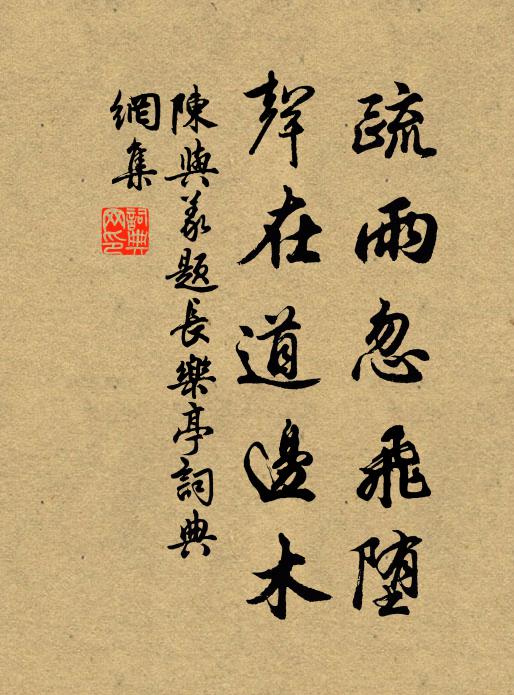 疏雨忽飛墮
聲在道邊木
陳與義題長樂亭詞典
網集
詞典
网印